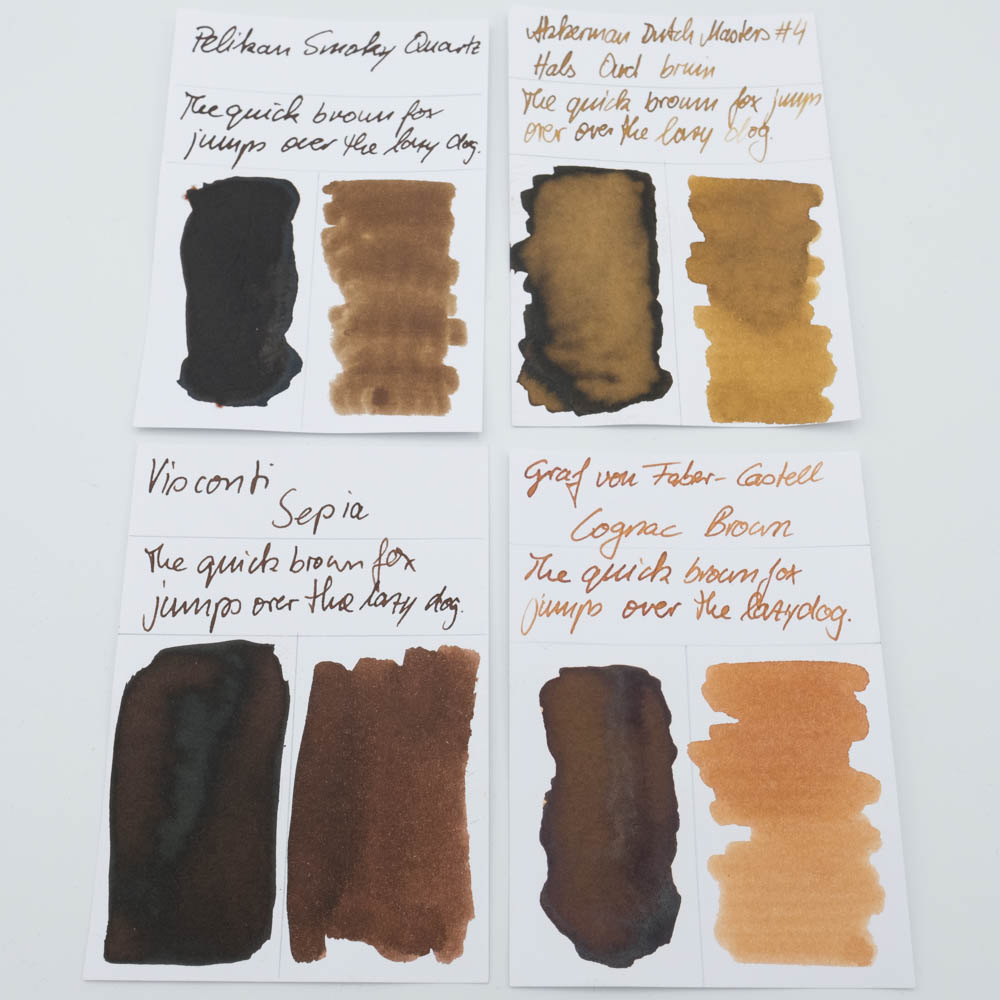 Pelikan Smoky Quartz
The quick brown fox
jumps over the lazy dog.
Akkerman Dutch Masters #4
Hals Oud bruin
The quick brown fox jumps
over over the lazy dog.
Visconti
Sepia
The quick brown fox
jumps over the lazy dog.
Graf von Faber-Castell
Cognac Brown
The quick brown fox
jumps over the lazy dog.